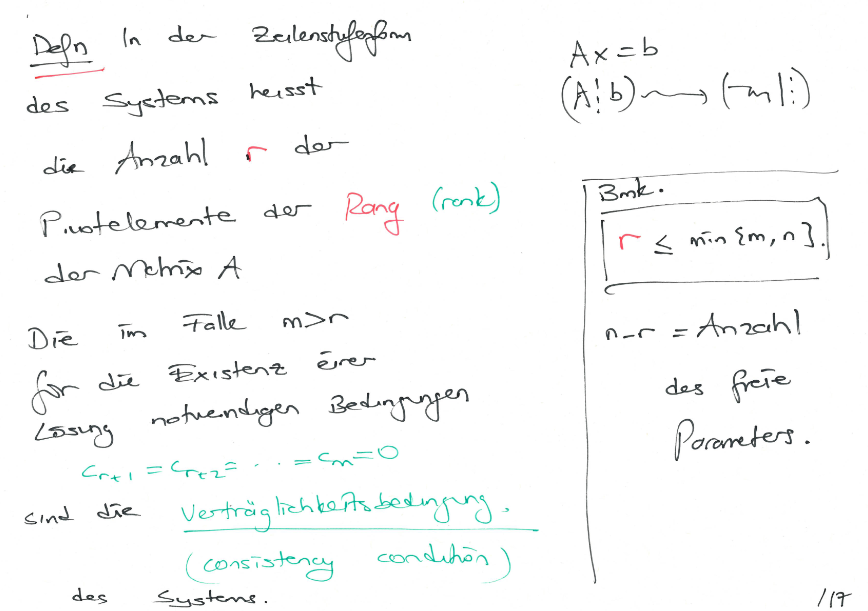 Defn In der Zeilenstufenform
des Systems heisst
die Anzahl r der
Pivotelemente der Rang (rank)
der Matrix A
Die im Falle m>r
für die Existenz einer
Lösung notwendigen Bedingungen
c_{r+1} = c_{r+2} = . . . = c_m = 0
sind die Verträglichkeitsbedingung.
(consistency condition)
des Systems.
Ax = b
(A¦b) ⟶ (¬m|⋮)
Bmk.
r ≤ min {m, n}.
n-r = Anzahl
des freie
Parameters.
/17